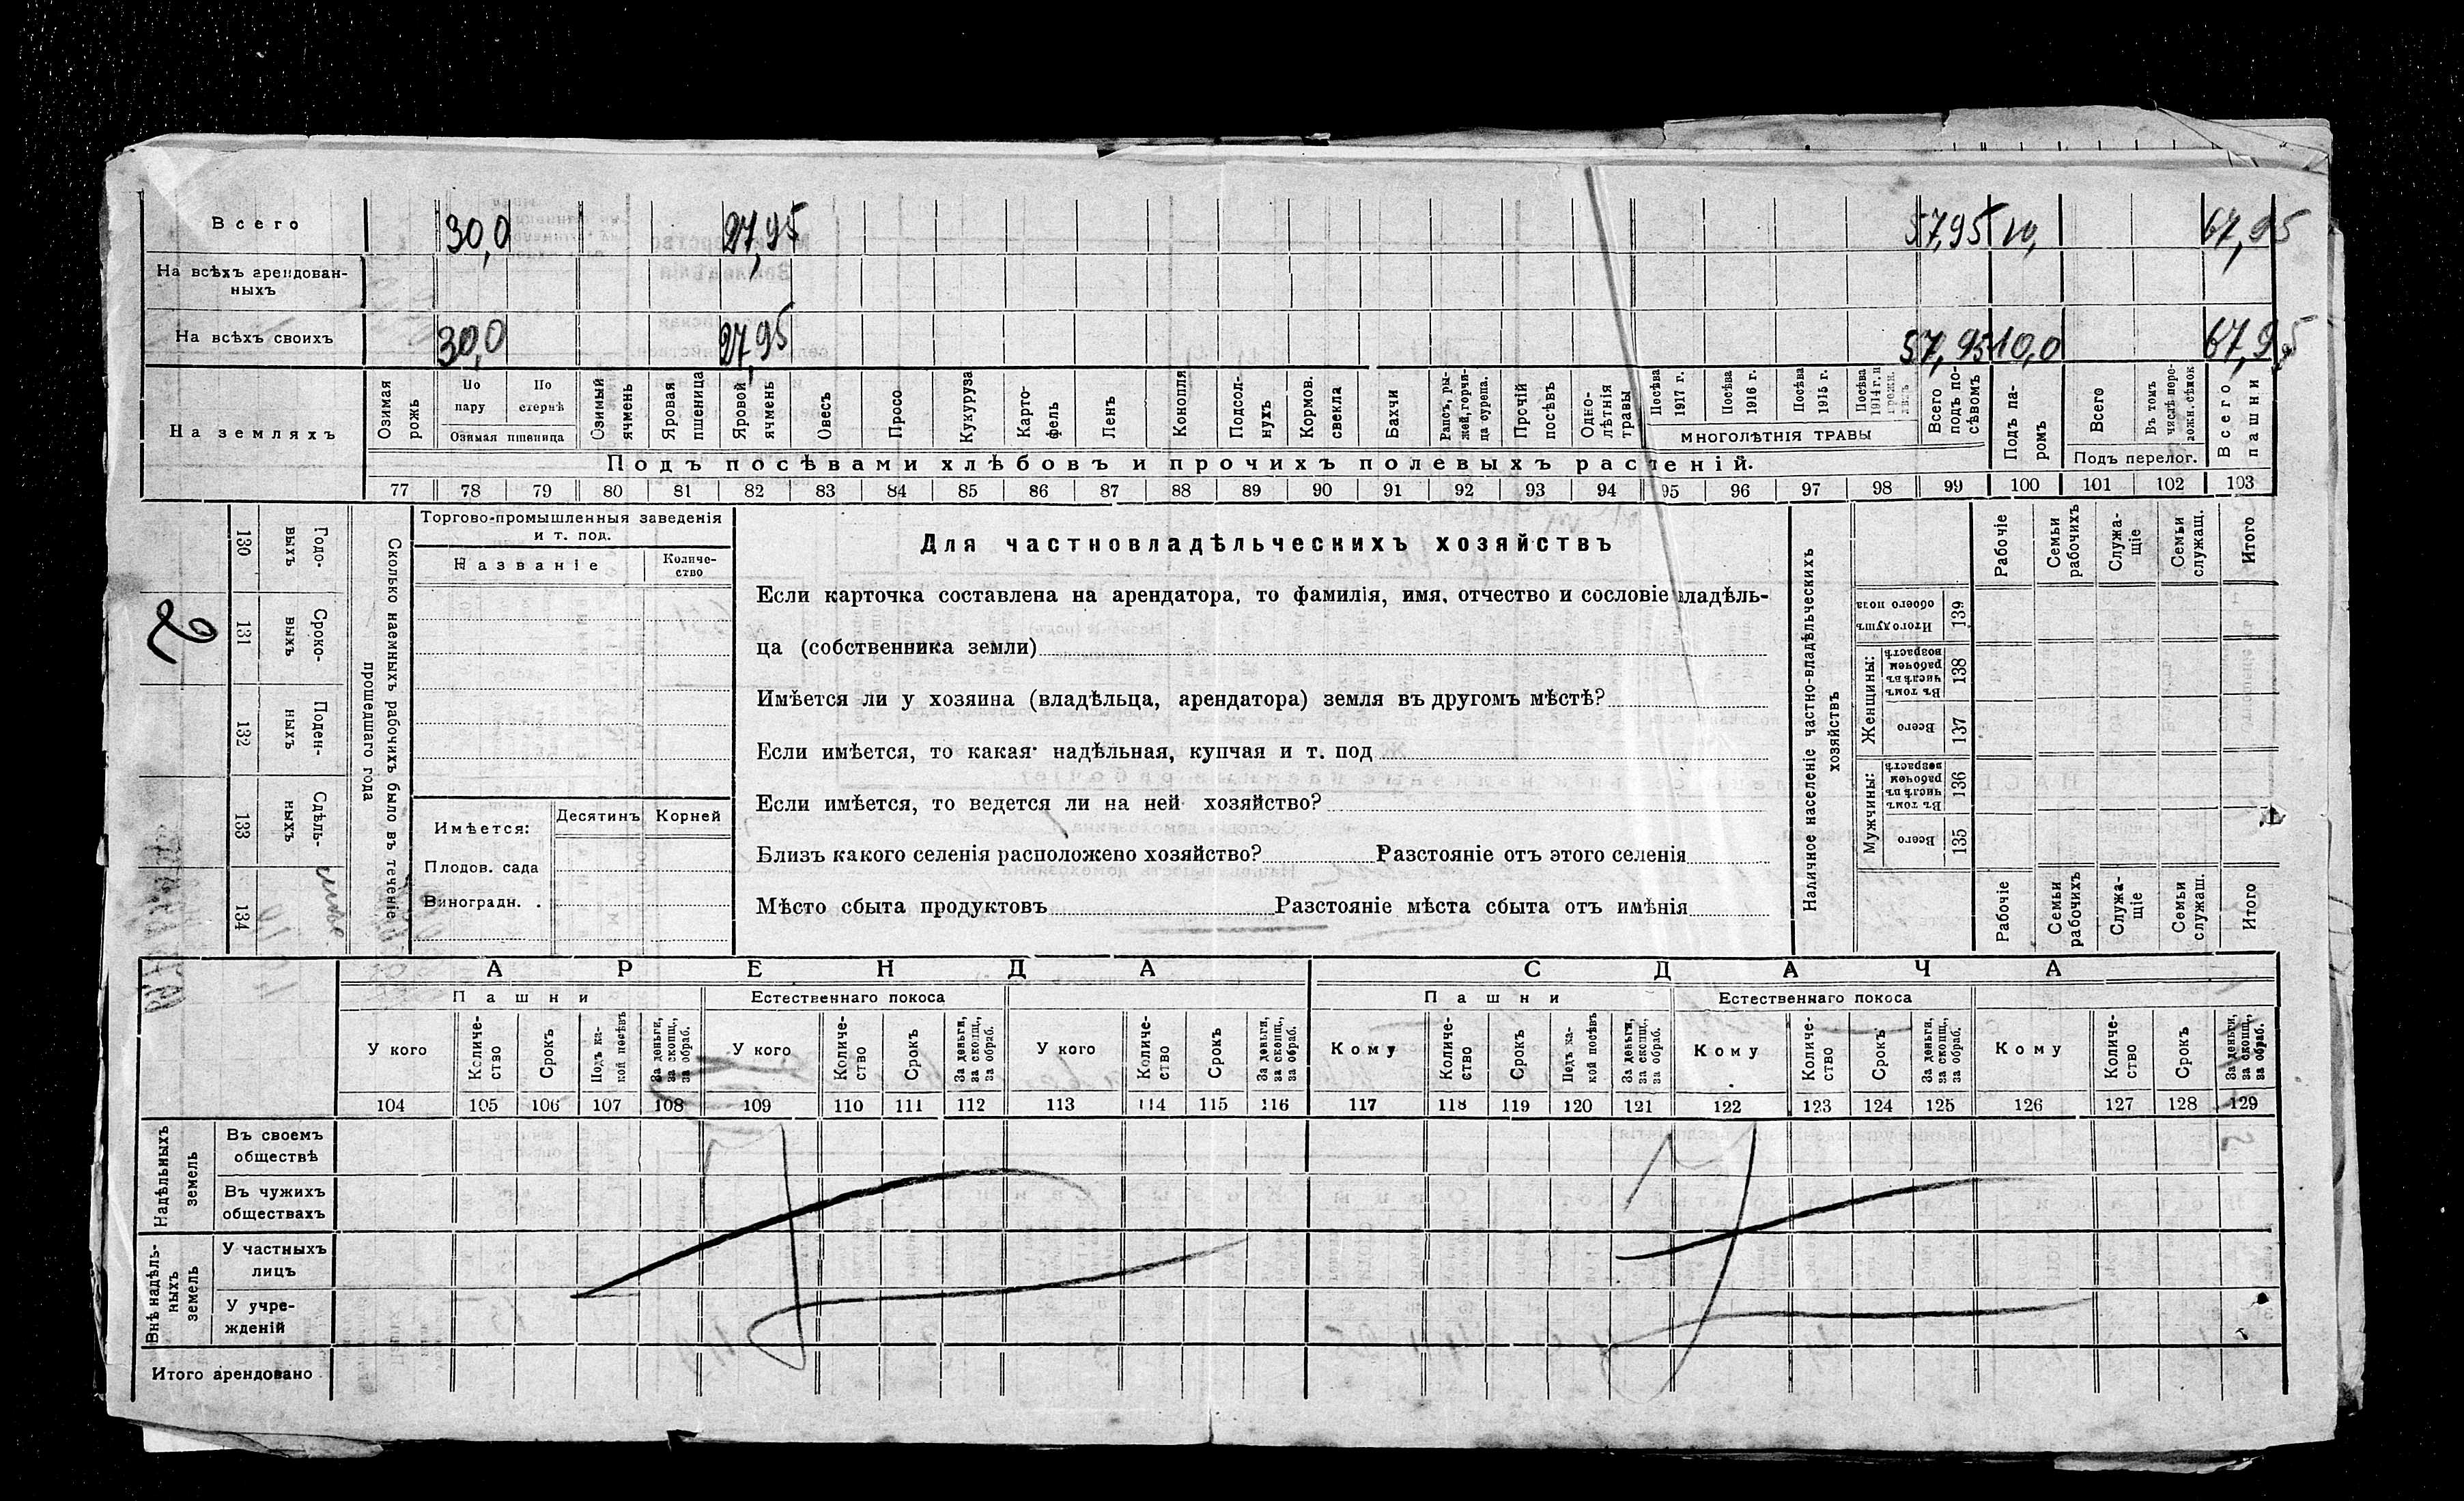 Всего 30,0 27,95 57,95 10, 67,95
На всѣхъ арендован-
ныхъ
На всѣхъ своихъ 30,0 27,95 57,95 10,0 67,95
На земляхъ
Озимая рожь
По пару
По стернѣ
Озимая пшеница
Озимый ячмень
Яровая пшеница
Яровой ячмень
Овесъ
Просо
Кукуруза
Карто-
фель
Ленъ
Конопля
Подсол-
нухъ
Кормов. свекла
Бахчи
Рапсъ, ры-
жей, горчи-
ца сурепа.
Прочій посѣвъ
Одно-
лѣтнія травы
Посѣва 1917 г.
Посѣва 1916 г.
Посѣва 1915 г.
Посѣва 1914 г. и
МНОГОЛѢТНІЯ ТРАВЫ
Всего подъ по-
сѣвомъ
Подъ па-
ромъ
Всего
Въ томъ числѣ
Подъ перелог.
Всего пашни
Подъ посѣвами хлѣбовъ и прочихъ полевыхъ растеній.
77 78 79 80 81 82 83 84 85 86 87 88 89 90 91 92 93 94 95 96 97 98 99 100 101 102 103
2
130 131 132 133 134
Годо-
выхъ
Сроко-
выхъ
Поден-
ныхъ
Сдѣль-
ныхъ
Сколько наемныхъ рабочихъ было въ теченіе
прошедшаго года
Торгово-промышленныя заведенія
и т. под.
Названіе
Количе-
ство
Имѣется:
Десятинъ
Корней
Плодов. сада
Виноградн. .
Для частновладѣльческихъ хозяйствъ
Если карточка составлена на арендатора, то фамилія, имя, отчество и сословіе владѣль-
ца (собственника земли)
Имѣется ли у хозяина (владѣльца, арендатора) земля въ другомъ мѣстѣ?
Если имѣется, то какая· надѣльная, купчая и т. под
Если имѣется, то ведется ли на ней хозяйство?
Близъ какого селенія расположено хозяйство? Разстояніе отъ этого селенія
Мѣсто сбыта продуктовъ Разстояніе мѣста сбыта отъ имѣнія
Наличное населеніе частно-владѣльческихъ
хозяйствъ
Рабочіе
Семьи рабочихъ
Служа-
щіе
Семьи служащ.
Итого
Итого душъ обоего пола 139
Женщины:
Въ томъ числѣ въ рабочем возрастѣ 138
Всего 137
Мужчины:
Въ томъ числѣ въ рабочем возрастѣ 136
Всего 135
Рабочіе
Семьи рабочихъ
Служа-
щіе
Семьи служащ.
Итого
АРЕНДА СДАЧА
Пашни Естественнаго покоса Пашни Естественнаго покоса
У кого
Количе-
ство
Срокъ
Подъ ка-
кой посѣвъ
За деньги, за скопщ., за обраб.
У кого
Количе-
ство
Срокъ
За деньги, за скопщ., за обраб.
У кого
Количе-
ство
Срокъ
За деньги, за скопщ., за обраб.
Кому
Количе-
ство
Срокъ
Подъ ка-
кой посѣвъ
За деньги, за скопщ., за обраб.
Кому
Количе-
ство
Срокъ
За деньги, за скопщ., за обраб.
Кому
Количе-
ство
Срокъ
За деньги, за скопщ., за обраб.
104 105 106 107 108 109 110 111 112 113 114 115 116 117 118 119 120 121 122 123 124 125 126 127 128 129
Надѣльныхъ
земель
Въ своемъ
обществѣ
Въ чужихъ
обществахъ
Внѣ надѣль-
ныхъ
земель
У частныхъ
лицъ
У учре-
жденій
Итого арендовано